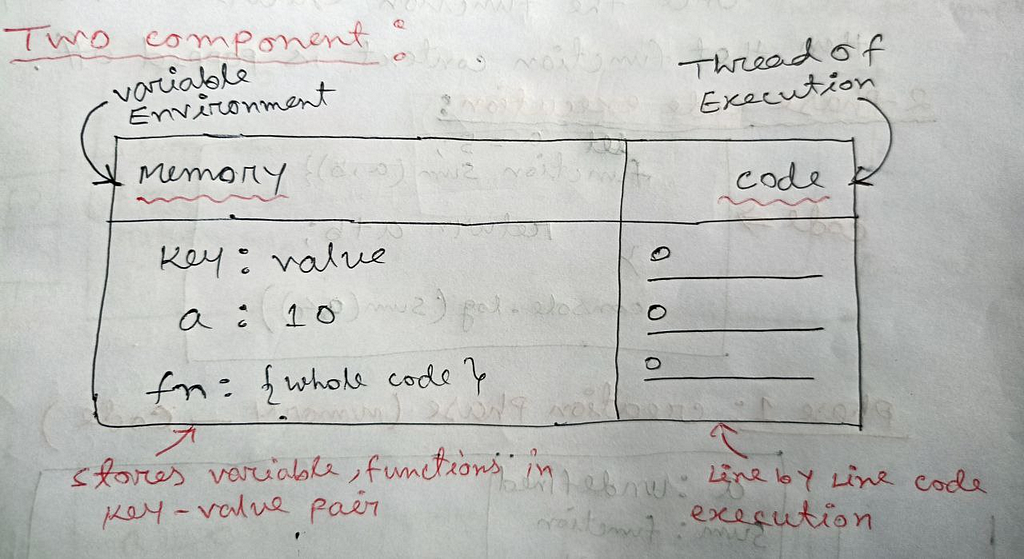 Two component :
variable
Environment
Thread of
Execution
Memory
code
Key : value
a : 10
fn : { whole code }
stores variable, functions in
key-value pair
Line by Line code
execution